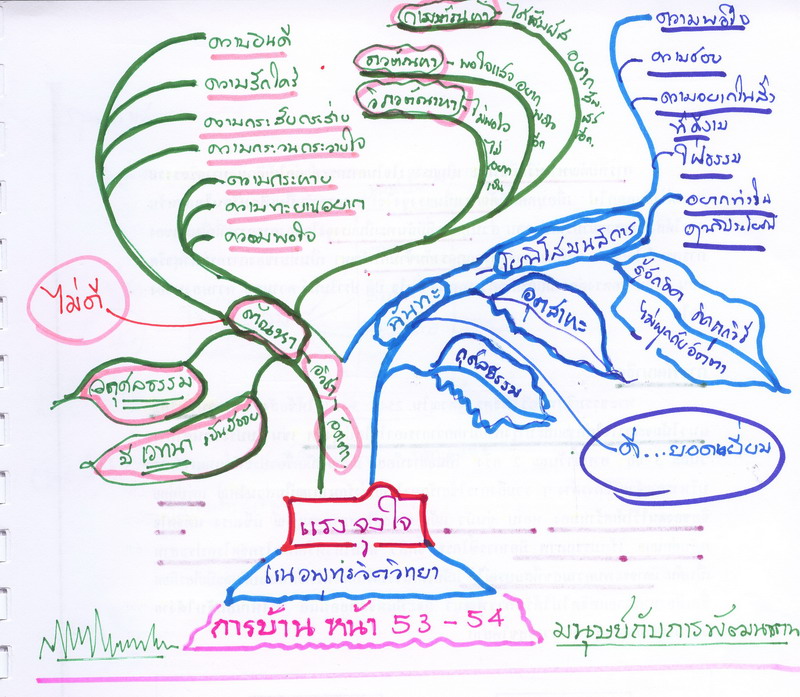 ความยินดี
ความรักใคร่
ความกระสับกระส่าย
ความกระวนกระวายใจ
ความกระหาย
ความทะยานอยาก
ความพอใจ
กามตัณหา
ได้สัมผัส อยาก
ภวตัณหา
พอใจแล้ว อยาก
วิภวตัณหา
ไม่พอใจ
ไม่
ความพอใจ
ความชอบ
ความอยากในสิ่ง
ที่ดีงาม
ใฝ่ธรรม
โยนิโสมนสิการ
รู้จักคิด คิดถูกวิธี
ไม่ผูกกับอัตตา
อุตสาหะ
ฉันทะ
กุศลธรรม
ดี...ยอดเยี่ยม
ไม่ดี
ตัณหา
อวิชา
อัตตา
อกุศลธรรม
มี เวทนา เป็นปัจจัย
แรงจูงใจ
แนวพุทธจิตวิทยา
การบ้าน หน้า 53 - 54
มนุษย์กับการพัฒนาตน